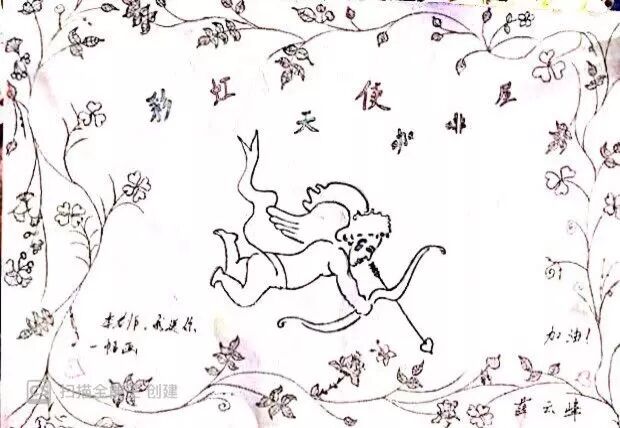 彩虹天使咖啡屋
李老师，我送你
一幅画
加油！
薛云峰
CS 扫描全能王 创建